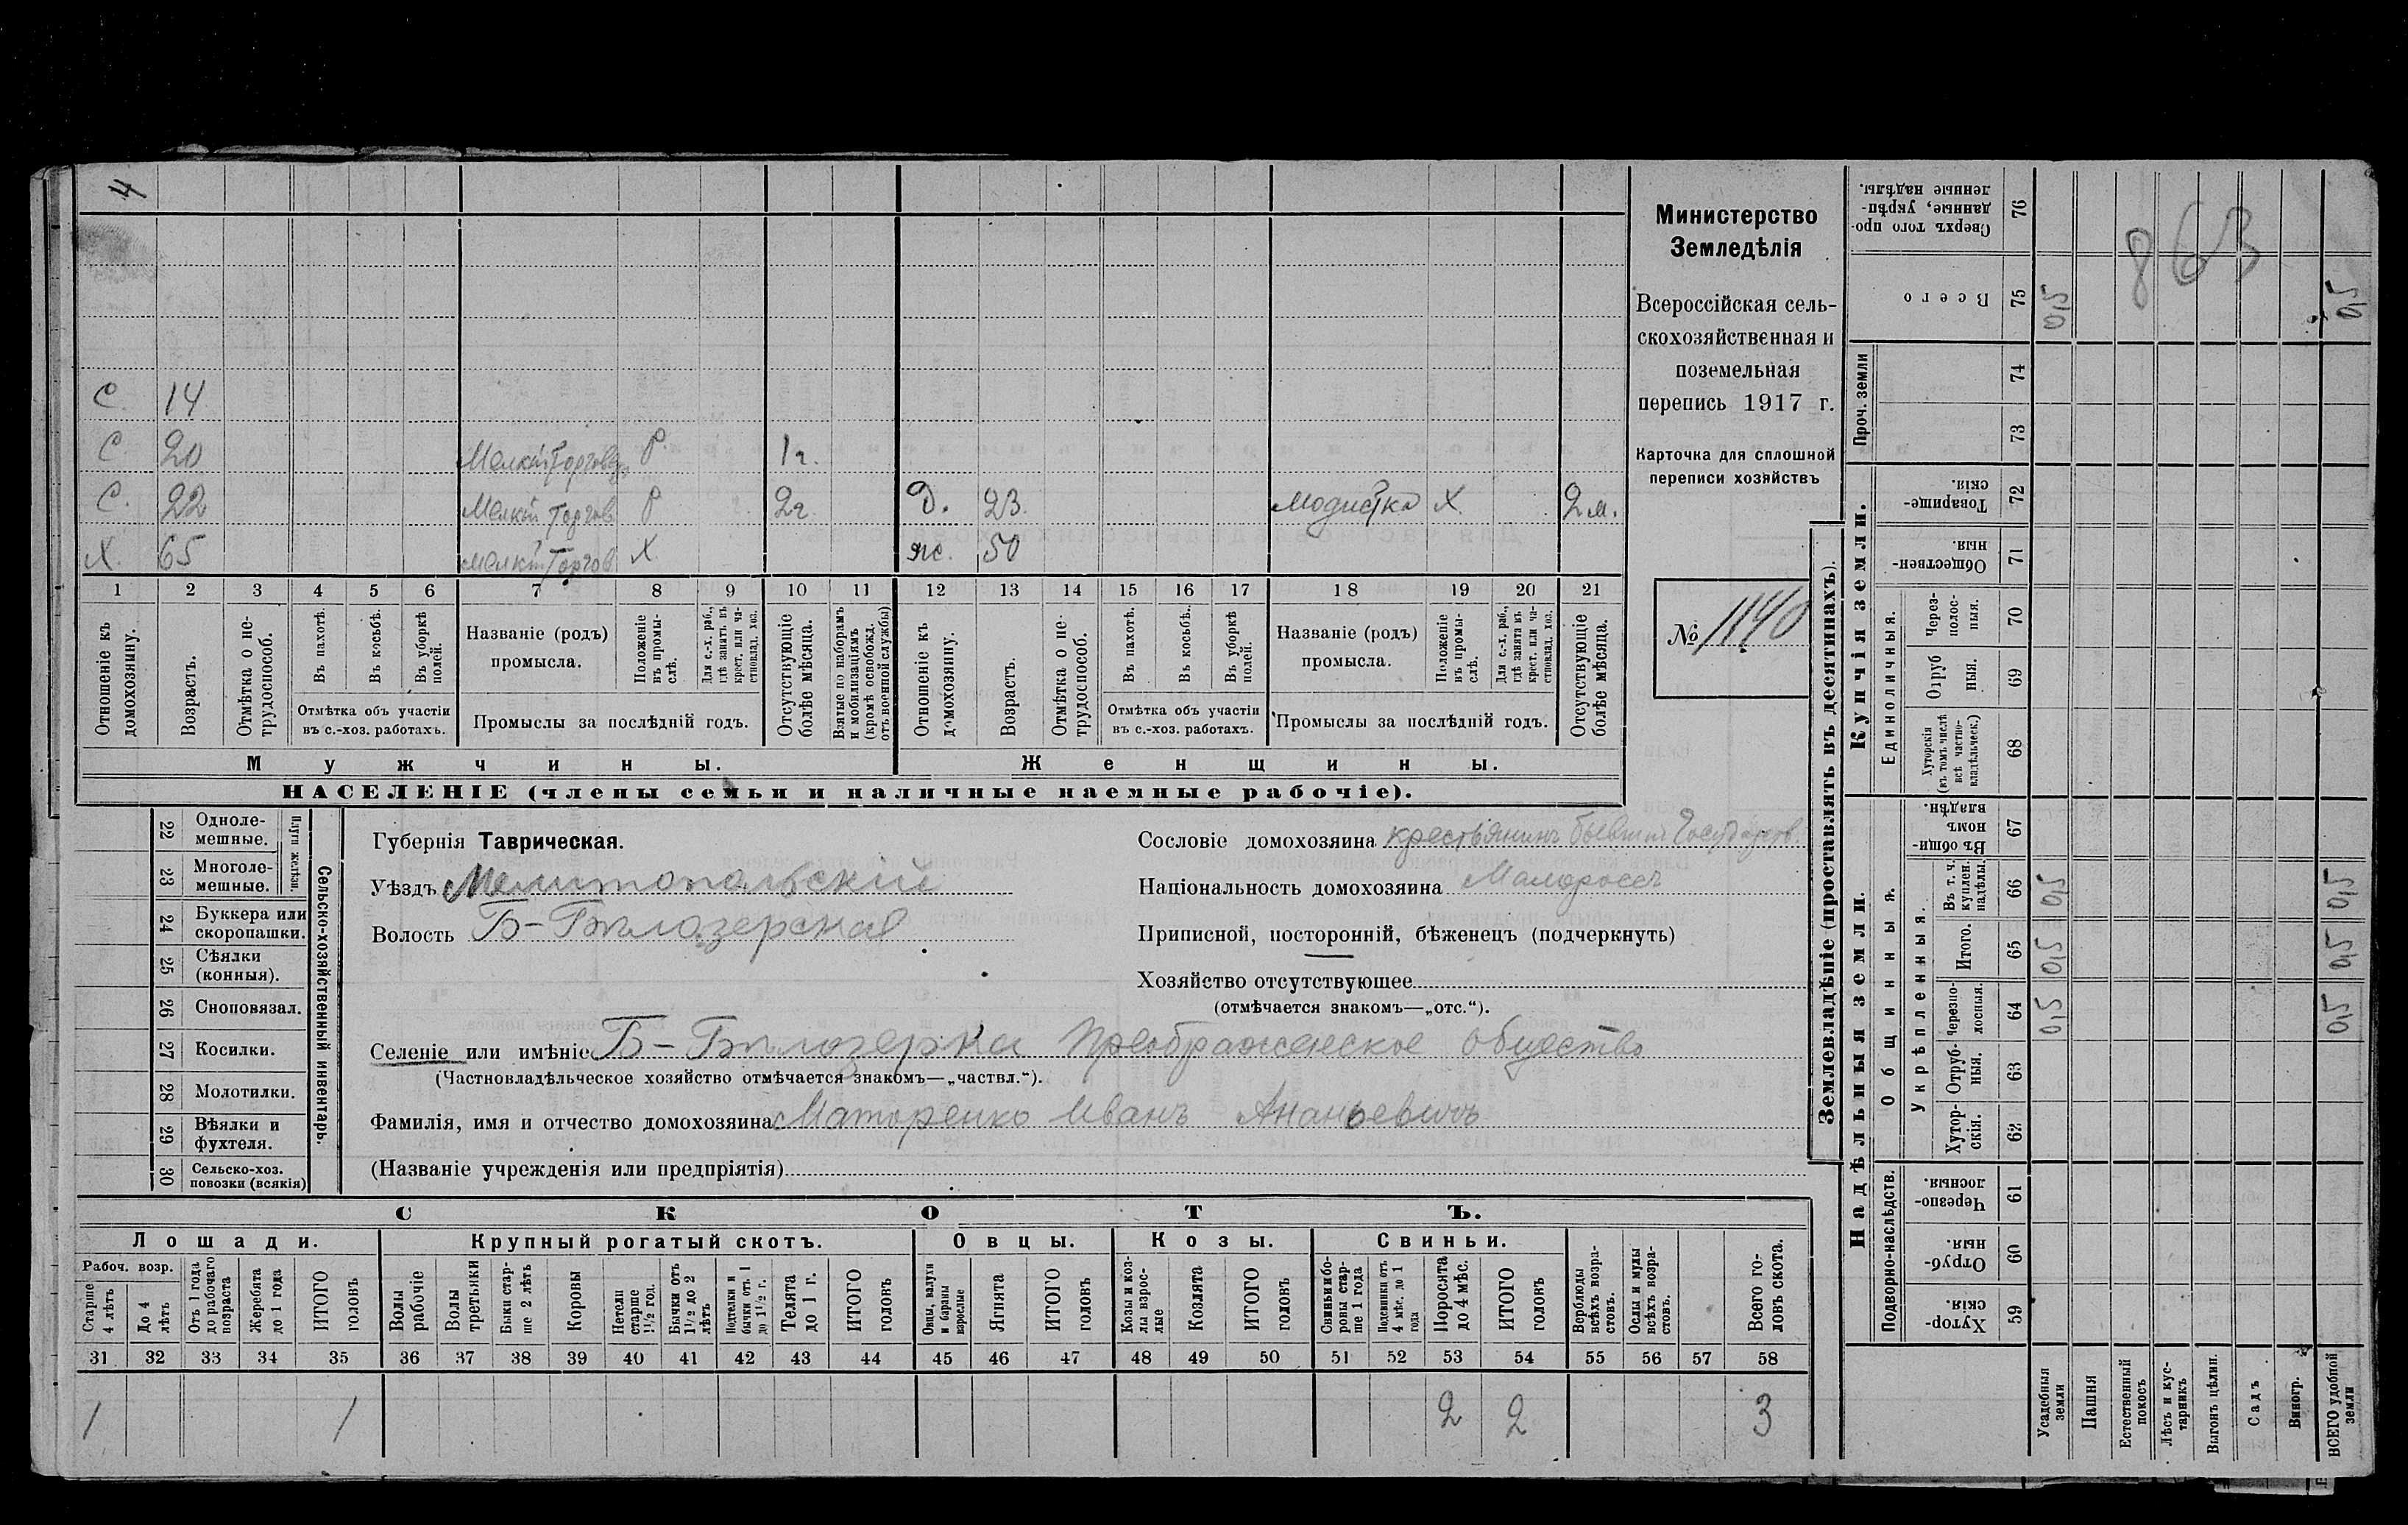 4
С. 14
С 20 Мелкій Торговец Р. 1 г.
С. 22 Мелкій Торгов Р 2 г Д. 23 модистка Х 2 м.
Х. 65 мелкій Торгов Х ж. 50
1 2 3 4 5 6 7 8 9 10 11 12 13 14 15 16 17 18 19 20 21
Отношеніе къ домохозяину.
Возрастъ.
Отмѣтка о не-
трудоспособ.
Въ пахотѣ.
Въ косьбѣ.
Въ уборкѣ полей.
Отмѣтка объ участіи
въ с.-хоз. работахъ.
Названіе (родъ)
промысла.
Положеніе въ промы-
слѣ.
Для с.-х. раб., гдѣ занятъ въ крест. или ча-
стновлад. хоз.
Промыслы за послѣдній годъ.
Отсутствующіе болѣе мѣсяца.
Взятые по наборамъ и мобилизаціямъ (кромѣ освобожд. отъ военной службы)
Отношеніе къ домохозяину.
Возрастъ.
Отмѣтка о не-
трудоспособ.
Въ пахотѣ.
Въ косьбѣ.
Въ уборкѣ полей.
Отмѣтка объ участіи
въ с.-хоз. работахъ.
Названіе (родъ)
промысла.
Положеніе въ промы-
слѣ.
Для с.-х. раб., гдѣ занята въ крест. или ча-
стновлад. хоз.
Промыслы за послѣдній годъ.
Отсутствующіе болѣе мѣсяца.
Мужчины.
Женщины.
НАСЕЛЕНІЕ (члены семьи и наличные наемные рабочіе).
Министерство
Земледѣлія
Всероссійская сель-
скохозяйственная и
поземельная
перепись 1917 г.
Карточка для сплошной
переписи хозяйствъ
№ 1140
22 Одноле-
мешные.
23 Многоле-
мешные.
Плуги желѣзн.
24 Буккера или
скоропашки.
25 Сѣялки
(конныя).
26 Сноповязал.
27 Косилки.
28 Молотилки.
29 Вѣялки и
фухтеля.
30 Сельско-хоз.
повозки (всякія)
Сельско-хозяйственный инвентарь.
Губернія Таврическая.
Уѣздъ Мелитопольскій
Волость Б-Бѣлозерская
Сословіе домохозяина крестьянинъ бывшій Государств
Національность домохозяина Малороссъ
Приписной, посторонній, бѣженецъ (подчеркнуть)
Хозяйство отсутствующее
(отмѣчается знакомъ—„отс.“).
Селеніе или имѣніе Б-Бѣлозерка Преображенское общество
(Частновладѣльческое хозяйство отмѣчается знакомъ—„частвл.“).
Фамилія, имя и отчество домохозяина Маторенко Иванъ Ананьевичъ
(Названіе учрежденія или предпріятія)
СКОТЪ.
Лошади. Крупный рогатый скотъ. Овцы. Козы. Свиньи.
Рабоч. возр.
Старше 4 лѣтъ
До 4 лѣтъ
Отъ 1 года до рабочаго возраста
Жеребята до 1 года
ИТОГО головъ
Волы рабочіе
Волы третьяки
Быки стар-
ше 2 лѣтъ
Коровы
Нетели старше 1½ год.
Бычки отъ 1½ до 2 лѣтъ
Подтелки и бычки отъ 1 до 1½ г.
Телята до 1 г.
ИТОГО головъ
Овцы, валухи и бараны взрослые
Ягнята
ИТОГО головъ
Козы и коз-
лы взрос-
лые
Козлята
ИТОГО головъ
Свиньи и бо-
ровы стар-
ше 1 года
Подсвинки отъ 4 мѣс. до 1 года
Поросята до 4 мѣс.
ИТОГО головъ
Верблюды всѣхъ возра-
стовъ.
Ослы и мулы всѣхъ возра-
стовъ.
Всего го-
ловъ скота.
31 32 33 34 35 36 37 38 39 40 41 42 43 44 45 46 47 48 49 50 51 52 53 54 55 56 57 58
1 1 2 2 3
Землевладѣніе (проставлять въ десятинахъ).
Купчія земли.
Надѣльныя земли.
Проч. земли
Единоличныя.
Общинныя.
Укрѣпленныя.
Подворно-наслѣдств.
Сверхъ того про-
данные, укрѣп-
ленные надѣлы. 76
Всего 75 0,5 0,5
863
74
73
Товарище-
скія. 72
Обществен-
ныя. 71
Через-
полос-
ныя. 70
Отруб
ныя. 69
Хуторскія (въ томъ числѣ всѣ частно-
владѣльческ.) 68
Въ общин-
номъ
владѣн. 67
Въ т. ч. куплен. надѣлы 66 0,5 0,5
Итого. 65 0,5 0,5
Черезпо-
лосныя. 64 0,5 0,5
Отруб-
ныя. 63
Хутор-
скія. 62
Черезпо-
лосныя. 61
Отруб-
ныя. 60
Хутор-
скія. 59
Усадебныя земли
Пашня
Естественный покосъ
Лѣсъ и кус-
тарникъ
Выгонъ цѣлин.
Садъ
Виногр.
ВСЕГО удобной земли